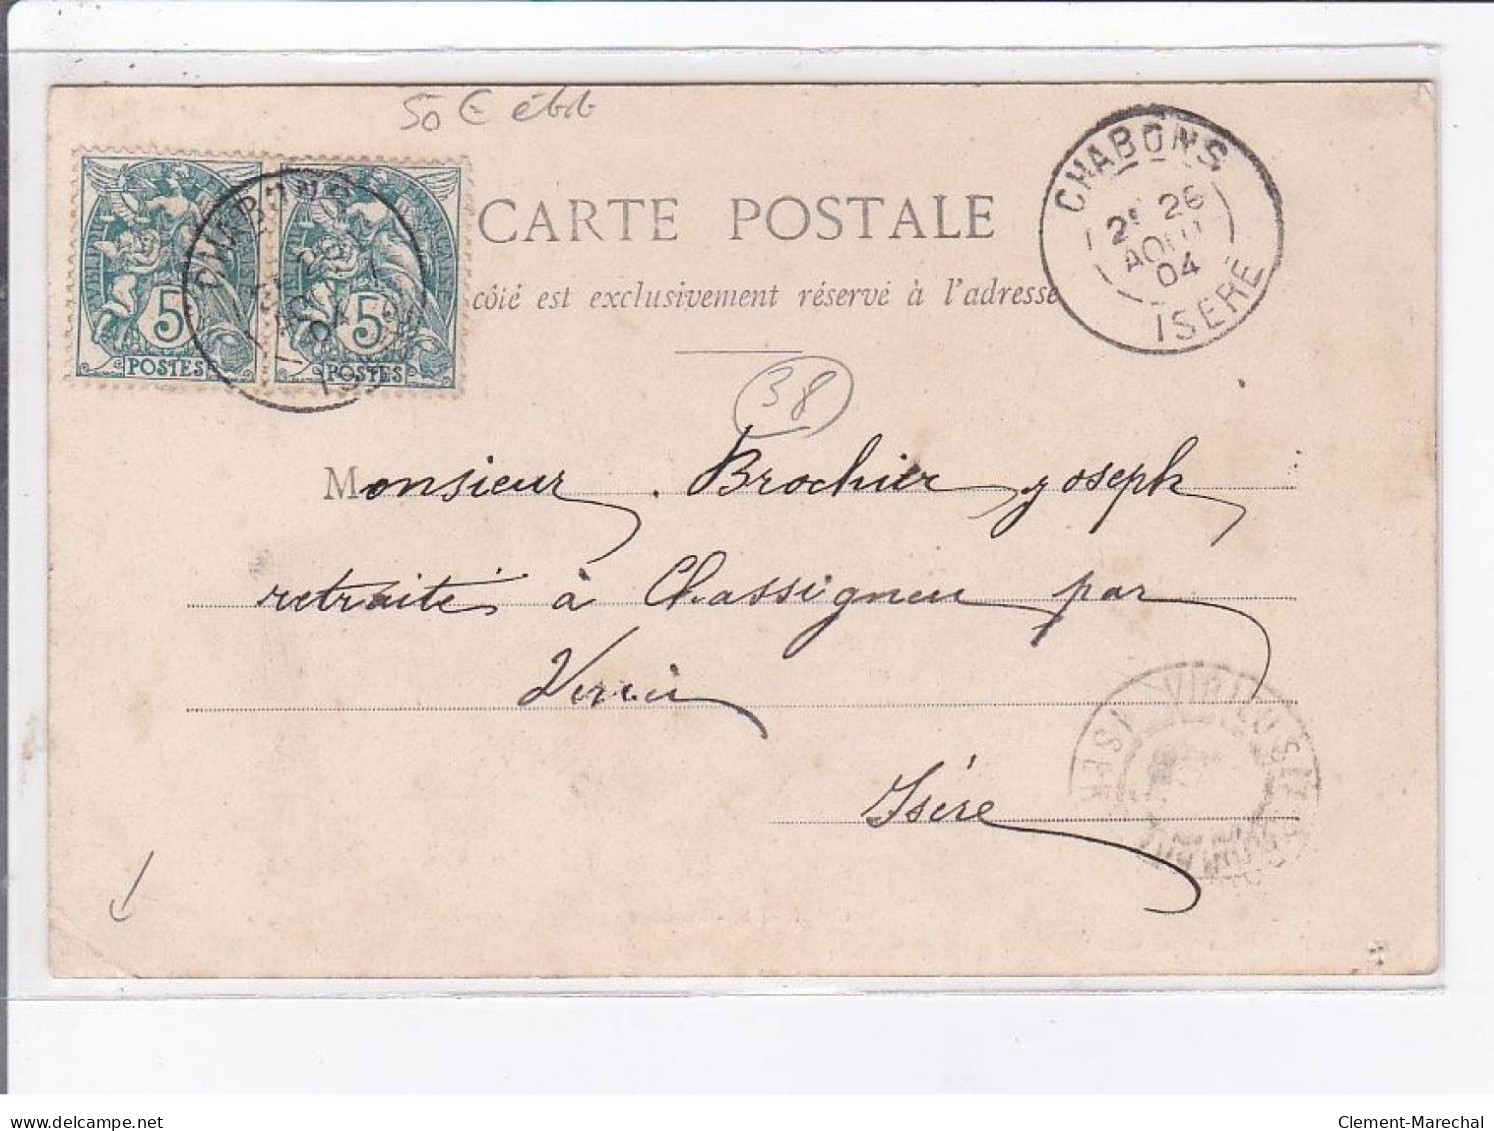 50 €
CHABONS
26
AOUT
04
ISERE
5
POSTES
5
POSTES
CARTE POSTALE
côté est exclusivement réservé à l'adresse
38
Monsieur Brochier Joseph
retraité à Chassigneu par
Virieu
Isère
delcampe.net
Clement-Marechal